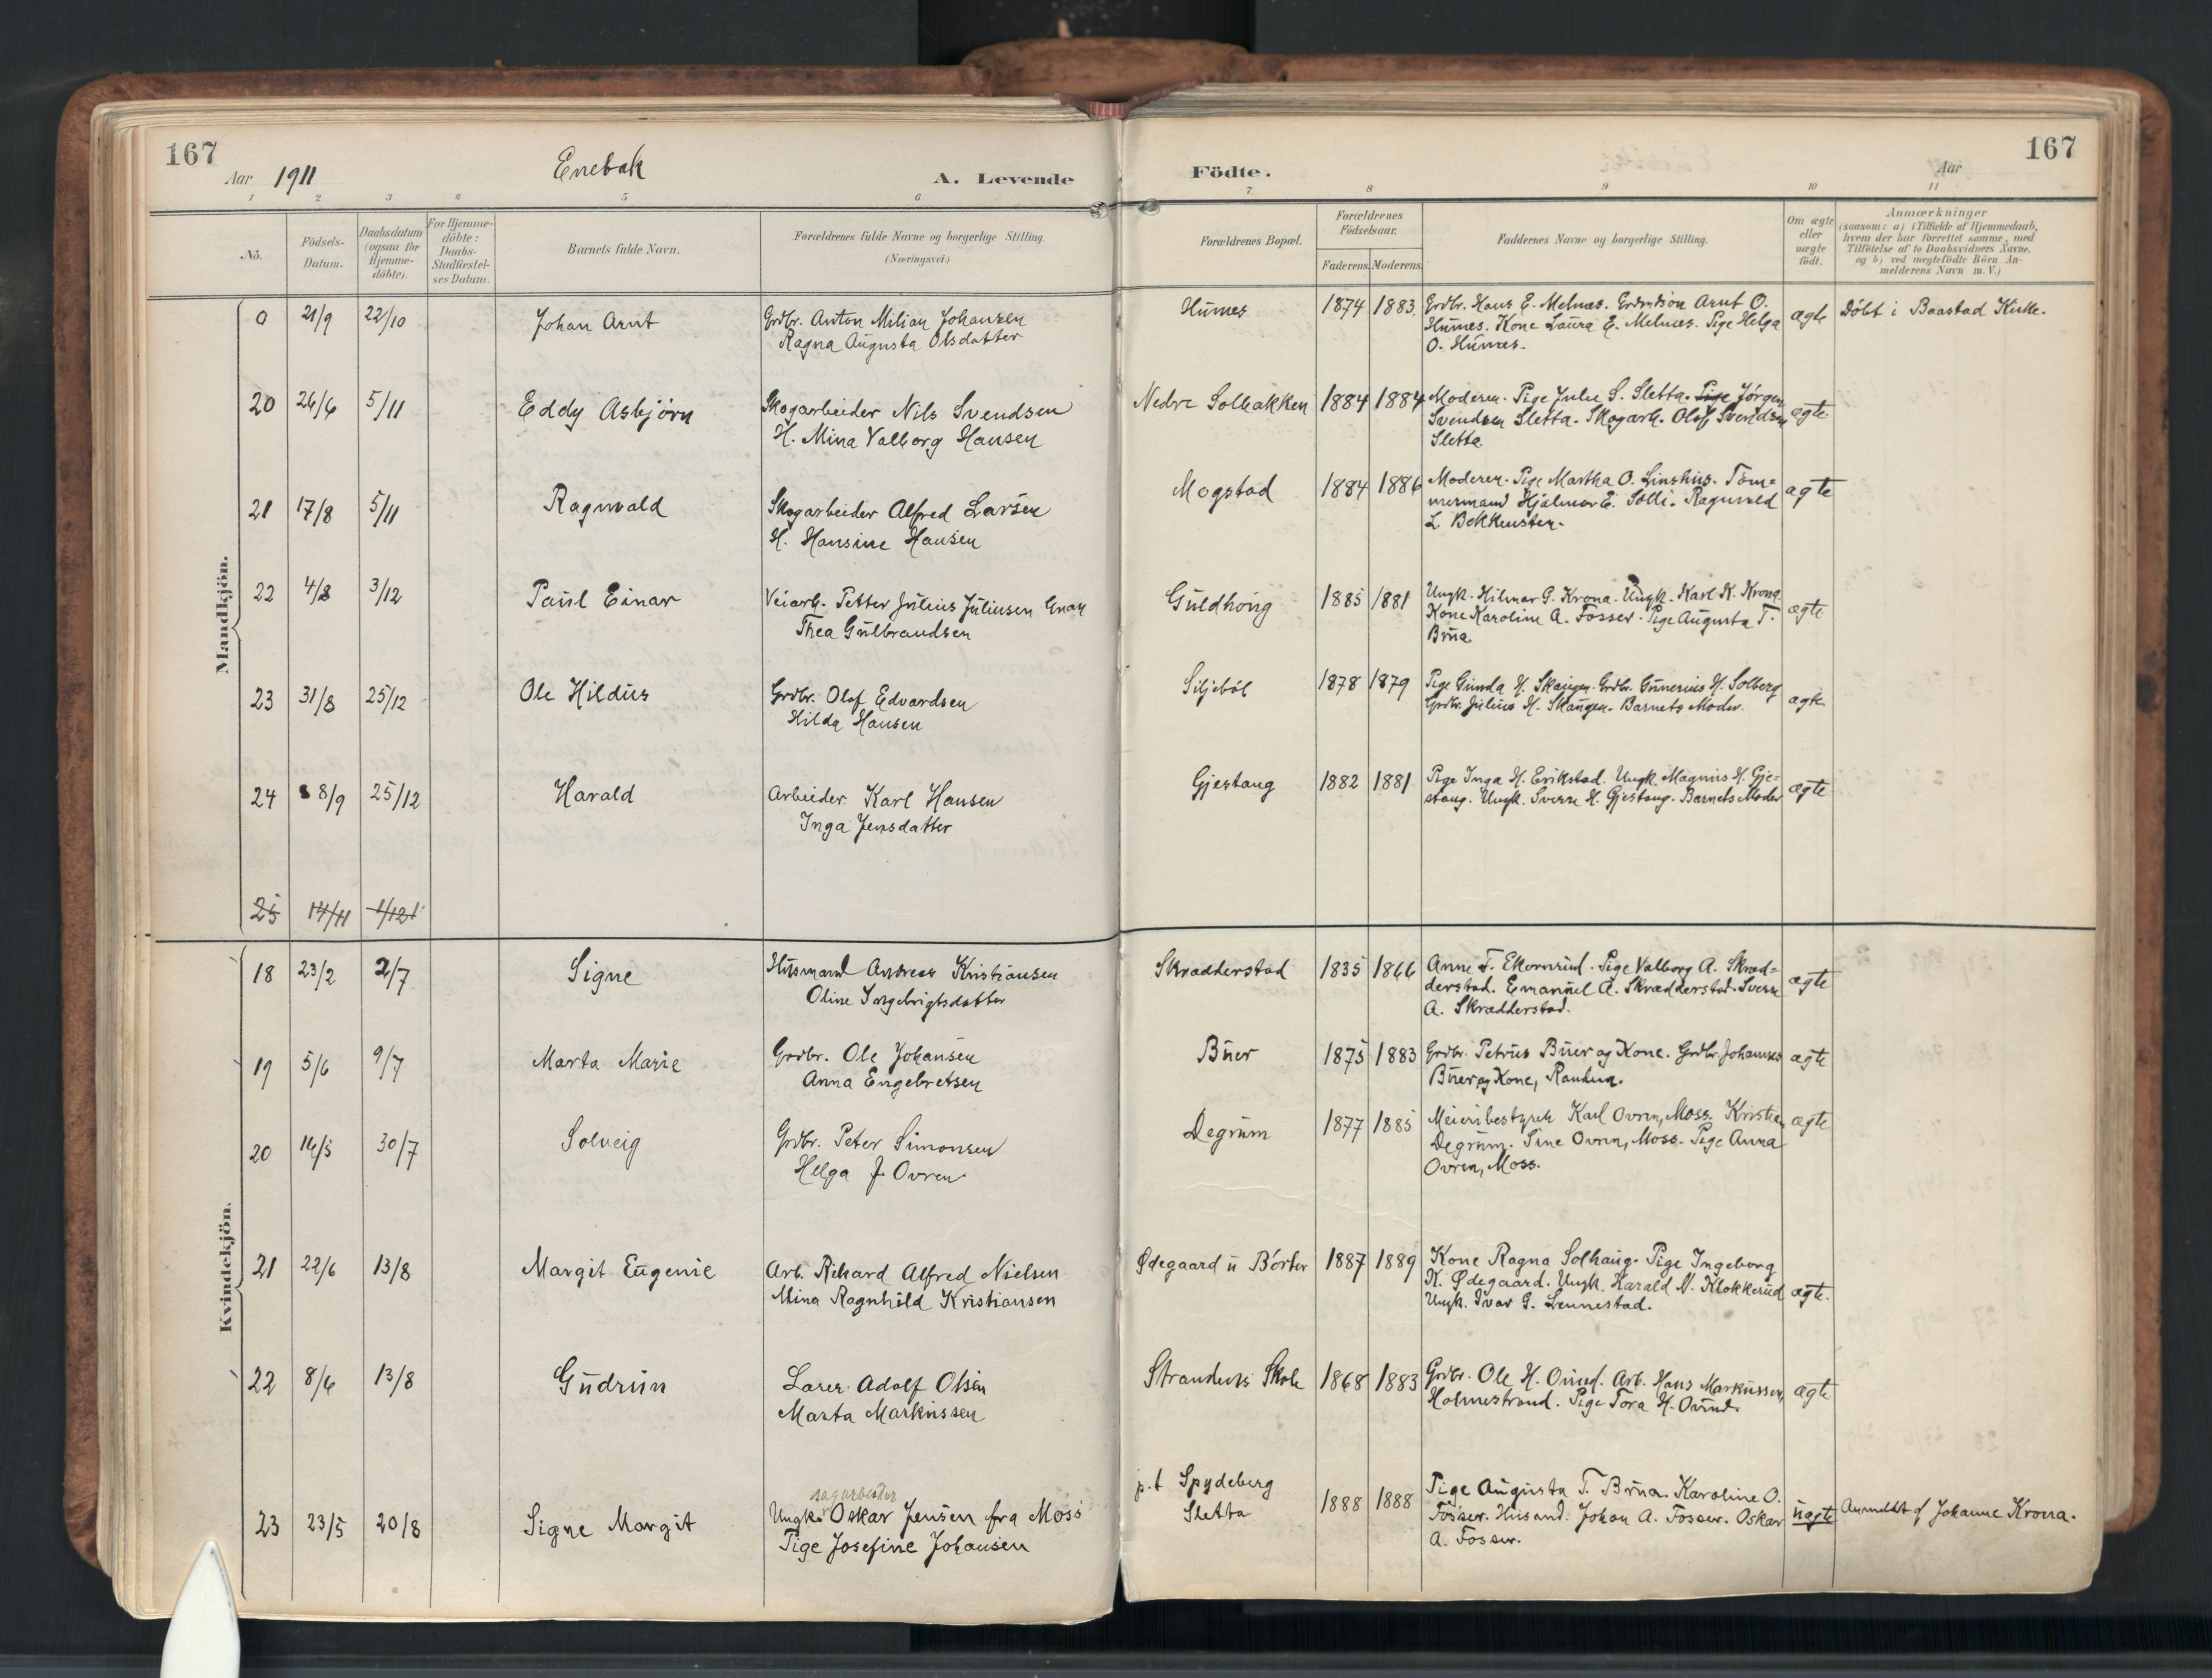 167
Aar 1911
Enebak
A. Levende
Födte.
Aar
167
1 2 3 4 5 6 7 8 9 10 11
No.
Födsels-
Datum.
Daabsdatum
(ogsaa for
Hjemme-
döbte).
For Hjemme-
döbte:
Daabs-
Stadfæstel-
ses Datum.
Barnets fulde Navn.
Forældrenes fulde Navne og borgerlige Stilling.
(Næringsvei.)
Forældrenes Bopæl.
Forældrenes
Födselsaar.
Faderens. Moderens.
Faddernes Navne og borgerlige Stilling.
Om ægte
eller
uægte
födt.
Anmærkninger
(saasom: a) i Tilfælde af Hjemmedaab,
hvem der har forrettet samme, med
Tilföielse af to Daabsvidners Navne.
og b) ved uægtefödte Börn An-
melderens Navn m. V.)
Mandkjön.
0 21/9 22/10 Johan Arnt
Grdbr. Anton Milian Johansen
Ragna Augusta Olsdatter
Humes 1874 1883
Grdbr. Hans E. Melnæs. Grdmdsön Arnt O.
Humes. Kone Laura E. Melnæs. Pige Helga
O. Humes.
ægte Döbt i Baastad Kirke.
20 26/6 5/11 Eddy Asbjörn
Skogarbeider Nils Svendsen
H. Mina Valborg Hansen
Nedre Solbakken 1884 1884
Moderen. Pige Julie S. Sletta. Pige Jørgen
Svendsen Sletta. Skogarb. Olof Svendsen
Sletta.
ægte
21 17/8 5/11 Ragnvald
Skogarbeider Alfred Larsen
H. Hansine Hansen
Mogstad 1884 1886
Moderen. Pige Martha O. Linshus. Töm-
mermand Hjalmar E. Solli. Ragnvald
L. Bekkensten.
ægte
22 4/8 3/12 Paul Einar
Veiarb. Petter Julius Juliusen
Thea Gulbrandsen
Guldhoug 1885 1881
Ungk. Hilmar G. Krona. Ungk. Karl K. Krona.
Kone Karoline A. Fosser. Pige Augusta T.
Brua.
ægte
23 31/8 25/12 Ole Hildus
Grdbr. Olof Edvardsen
Hilda Hansen
Siljeböl 1878 1879
Pige Gunda H. Skaugen. Grdbr. Gunerius H. Solberg
Grdbr. Julius H. Skaugen. Barnets Moder.
ægte
24 8/9 25/12 Harald
Arbeider Karl Hansen
Inga Jensdatter
Gjestang 1882 1881
Pige Inga H. Erikstad. Ungk. Magnus H. Gje-
stang. Ungk. Sverre H. Gjestang. Barnets Moder
ægte
25 14/11 1/12
Kvindekjön.
18 23/2 2/7 Signe
Husmand Andreas Kristiansen
Oline Ingebrigtsdatter
Skradderstad 1835 1866
Anne F. Ekornrud. Pige Valborg A. Skræd-
derstad. Emanuel A. Skrædderstad. Sverre
A. Skrædderstad.
ægte
19 5/6 9/7 Marta Marie
Grdbr. Ole Johansen
Anna Engebretsen
Buer 1875 1883
Grdbr. Petrus Buer og Kone. Grdbr. Johannes
Buer og Kone,
ægte
20 14/5 30/7 Solveig
Grdbr. Peter Simonsen
Helga J. Ovren
Degrum 1877 1885
Meieribestyrer Karl Ovren, Moss. Kristian
Degrum. Sine Ovren, Moss. Pige Anna
Ovren, Moss.
ægte
21 22/6 13/8 Margit Eugenie
Arb. Rikard Alfred Nielsen
Mina Ragnhild Kristiansen
Ødegaard u Börter 1887 1889
Kone Ragna Solhaug. Pige Ingeborg
K. Ødegaard. Ungk. Harald N. Klokkerud
Ungk. Ivar G. Lennestad.
ægte.
22 8/6 13/8 Gudrun
Lærer Adolf Olsen
Marta Markussen
Strandens Skole 1868 1883
Grdbr. Ole H. Ovind. Arb. Hans Markussen,
Holmestrand. Pige Tora H. Ovind.
ægte
23 23/5 20/8 Signe Margit
sagarbeider
Ungk. Oskar Jensen fra Moss
Pige Josefine Johansen
p.t Spydeberg
Sletta
1888 1888
Pige Augusta T. Brua. Karoline O.
Fosser. Husmd. Johan A. Fosser. Oskar
A. Fosser.
uægte Anmeldt af Johanne Krona.